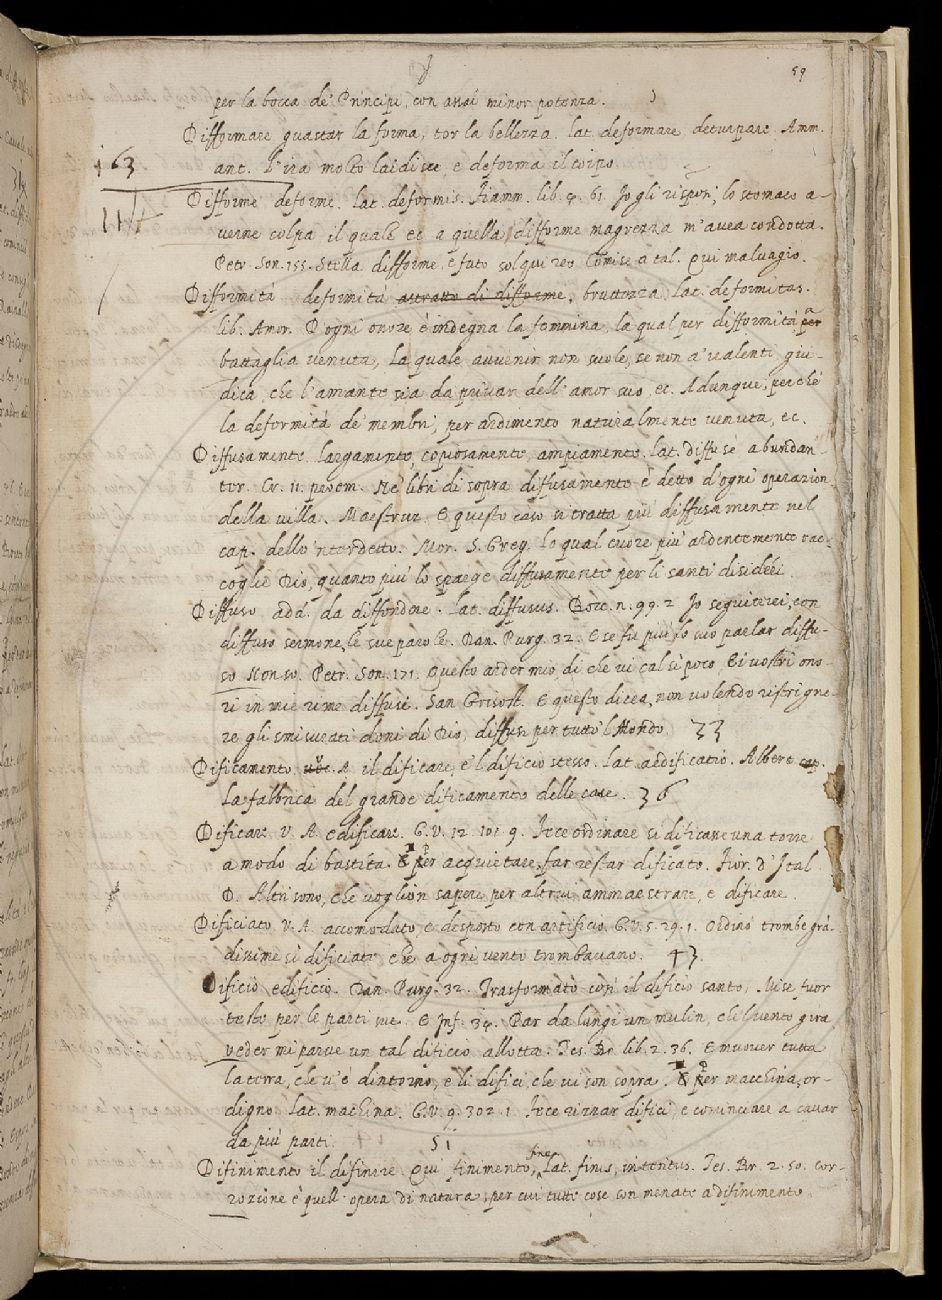 59
per la bocca de' Principi, con assai minor potenza.
Difformare guastar la forma, tor la bellezza. lat. deformare deturpare. Amm.
63
ant. l'ira molto laidisce, e deforma il corpo.
Difforme deforme. lat. deformis. Fiamm. lib. 4. 61. Io gli risposi, lo stomaco a-
verne colpa il quale ec. a quella difforme magrezza m'avea condotta.
Petr. Son. 155. Stella difforme, e fato sol qui reo Comise a tal. Qui malvagio.
Difformità deformità astratto di difforme, bruttezza, lat. deformitas.
lib. Amor. D'ogni onore è indegna la femmina, la qual per difformità per
battaglia venuta, la quale avvenir non suole, se non a' valenti giu-
dica, che l'amante sia da privar dell'amor suo, ec. Adunque, perché
la deformità de' membri, per ardimento naturalmente venuta, ec.
Diffusamente largamente, copiosamente, ampiamente, lat. diffuse abundan-
ter. Cr. 11. proem. Ne' libri di sopra difusamente è detto d'ogni operazion
della villa. Maestruz. E questo caso si tratta più diffusamente nel
cap. dello 'nterdetto. Mor. S. Greg. Lo qual cuore più ardentemente rac-
coglie Dio, quanto più lo sparge diffusamente per li santi disidéri.
Diffuso add. da diffondere. lat. diffusus. Bocc. n. 99. 2 Io seguiterei, con
diffuso sermone, le sue parole. Dan. Purg. 32. E se fu più lo suo parlar diffu-
so Non so. Petr. Son. 171. Questo arder mio, di che vi cal sì poco, E i vostri ono-
ri in mie rime diffusi. San Grisost. E questo dicea, non volendo ristrigne-
re gli smisurati doni di Dio, diffusi per tutto 'l Mondo. 33
Dificamento V. A. il dificare, e 'l dificio stesso. Lat. aedificatio. Albert. cap.
La fabbrica del grande dificamento delle case. 36
Dificare V. A. edificare. G. V. 12. 101. 9. Fece ordinare si dificasse una torre
a modo di bastita. E per acquietare, far restar dificato. Fior. d'Ital.
D. Altri sono, che voglion sapere per altrui ammaestrare, e dificare.
Dificiato V. A. accomodato, e disposto con artificio. G. V. 5. 29. 1. Ordinò trombe grà-
dissime sì dificiate che a ogni vento trombavano. 43.
Dificio edificio. Dan. Purg. 32. Trasformato così il dificio santo, Mise fuor
teste per le parti sue. E Inf. 34. Par da lungi un mulin, che 'l vento gira
veder mi parve un tal dificio allotta. Tes. Br. lib. 2. 36. E muover tutta
la terra, che v'è dintorno, e li difici, che vi son sopra. E per macchina, or-
digno. Lat. machina. G. V. 9. 302. 1. Fece rizzar difici, e cominciare a cavar
da più parti. 51
Difinimento il difinire. Qui finimento, fine, Lat. finis, interitus. Tes. Br. 2. 50. cor-
rozione è quell'opera di natura, per cui tutte cose son menate a difinimento.